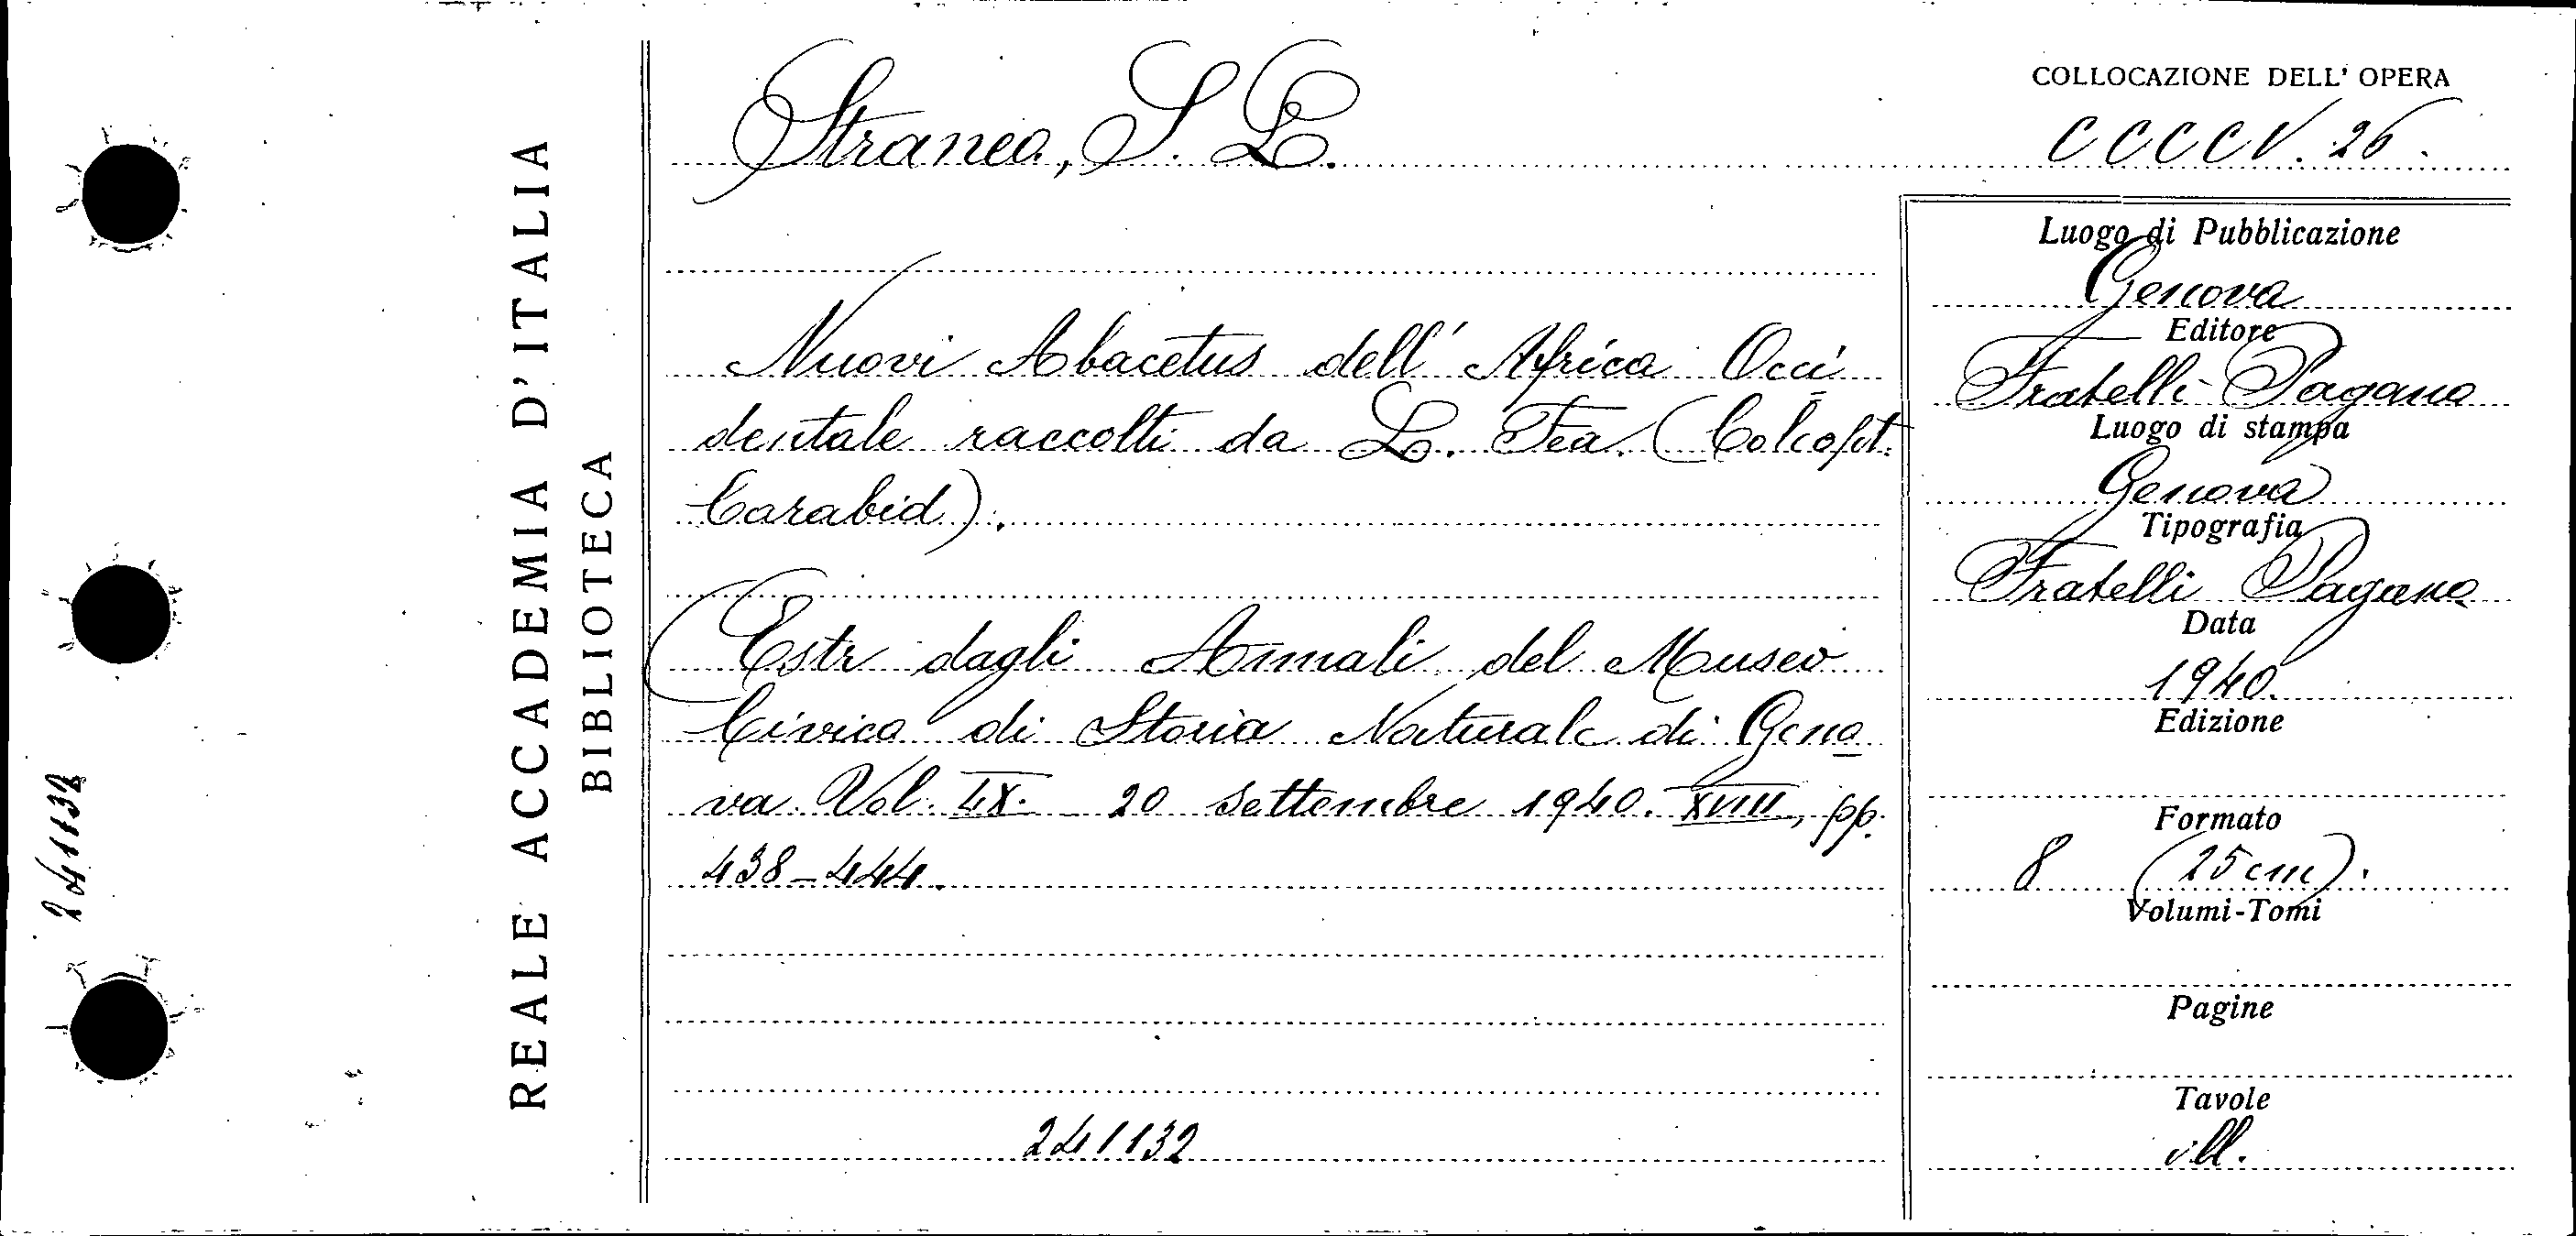 241132
REALE ACCADEMIA D'ITALIA
BIBLIOTECA
Straneo, S. L.
Nuovi Abacetus dell'Africa Occi
dentale raccolti da L. Fea. (Coleopt.
Carabid).
Estr dagli Annali del Museo
Civico di Storia Naturale di Geno
va. Vol. LX. - 20 settembre 1940. XVIII, pp.
438-444.
241132
COLLOCAZIONE DELL' OPERA
CCCCV. 26.
Luogo di Pubblicazione
Genova
Editore
Fratelli Pagano
Luogo di stampa
Genova
Tipografia
Fratelli Pagano
Data
1940.
Edizione
Formato
8 (25 cm).
Volumi-Tomi
Pagine
Tavole
ill.